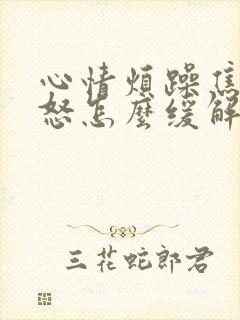 心情煩躁焦
怒怎麼緩解
三花蛇郎君